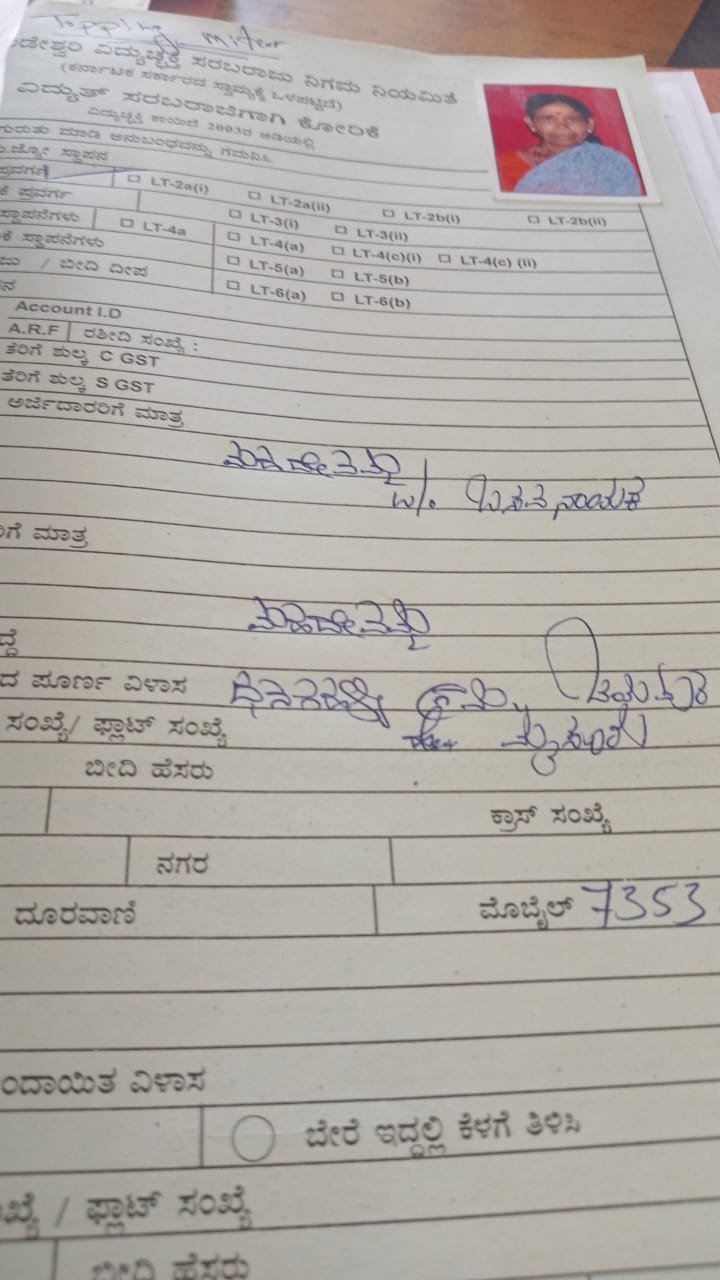 Topping Miter
ಡೇಶ್ವರಿ ವಿದ್ಯುಚ್ಛಕ್ತಿ ಸರಬರಾಜು ನಿಗಮ ನಿಯಮಿತ
(ಕರ್ನಾಟಕ ಸರ್ಕಾರದ ಸ್ವಾಮ್ಯಕ್ಕೆ ಒಳಪಟ್ಟಿದೆ)
ವಿದ್ಯುತ್ ಸರಬರಾಜಿಗಾಗಿ ಕೋರಿಕೆ
ವಿದ್ಯುಚ್ಛಕ್ತಿ ಕಾಯಿದೆ 2003ರ ಅಡಿಯಲ್ಲಿ
ಗುರುತು ಮಾಡಿ ಅನುಬಂಧವನ್ನು ಗಮನಿಸಿ
ಸ್ಥಾಪನ
ಪ್ರವರ್ಗ □ LT-2a(i) □ LT-2a(ii) □ LT-2b(i) □ LT-2b(ii)
ಕೆ ಪ್ರವರ್ಗ □ LT-3(i) □ LT-3(ii)
ಸ್ಥಾಪನೆಗಳು □ LT-4a □ LT-4(a) □ LT-4(c)(i) □ LT-4(c) (ii)
ಕೆ ಸ್ಥಾಪನೆಗಳು □ LT-5(a) □ LT-5(b)
/ ಬೀದಿ ದೀಪ □ LT-6(a) □ LT-6(b)
Account I.D
A.R.F ರಶೀದಿ ಸಂಖ್ಯೆ :
ತೆರಿಗೆ ಶುಲ್ಕ C GST
ತೆರಿಗೆ ಶುಲ್ಕ S GST
ಅರ್ಜಿದಾರರಿಗೆ ಮಾತ್ರ
ಮಹದೇವಮ್ಮ
w/o ನಾಯಕ
ಗೆ ಮಾತ್ರ
ಮಹದೇವಮ್ಮ
ದ್ದೆ
ದ ಪೂರ್ಣ ವಿಳಾಸ
ಸಂಖ್ಯೆ/ ಫ್ಲಾಟ್ ಸಂಖ್ಯೆ ಮೈಸೂರು
ಬೀದಿ ಹೆಸರು
ಕ್ರಾಸ್ ಸಂಖ್ಯೆ
ನಗರ
ದೂರವಾಣಿ ಮೊಬೈಲ್ 7353
ಂದಾಯಿತ ವಿಳಾಸ
ಬೇರೆ ಇದ್ದಲ್ಲಿ ಕೆಳಗೆ ತಿಳಿಸಿ
ಖ್ಯೆ / ಫ್ಲಾಟ್ ಸಂಖ್ಯೆ
ಬೀದಿ ಹೆಸರು